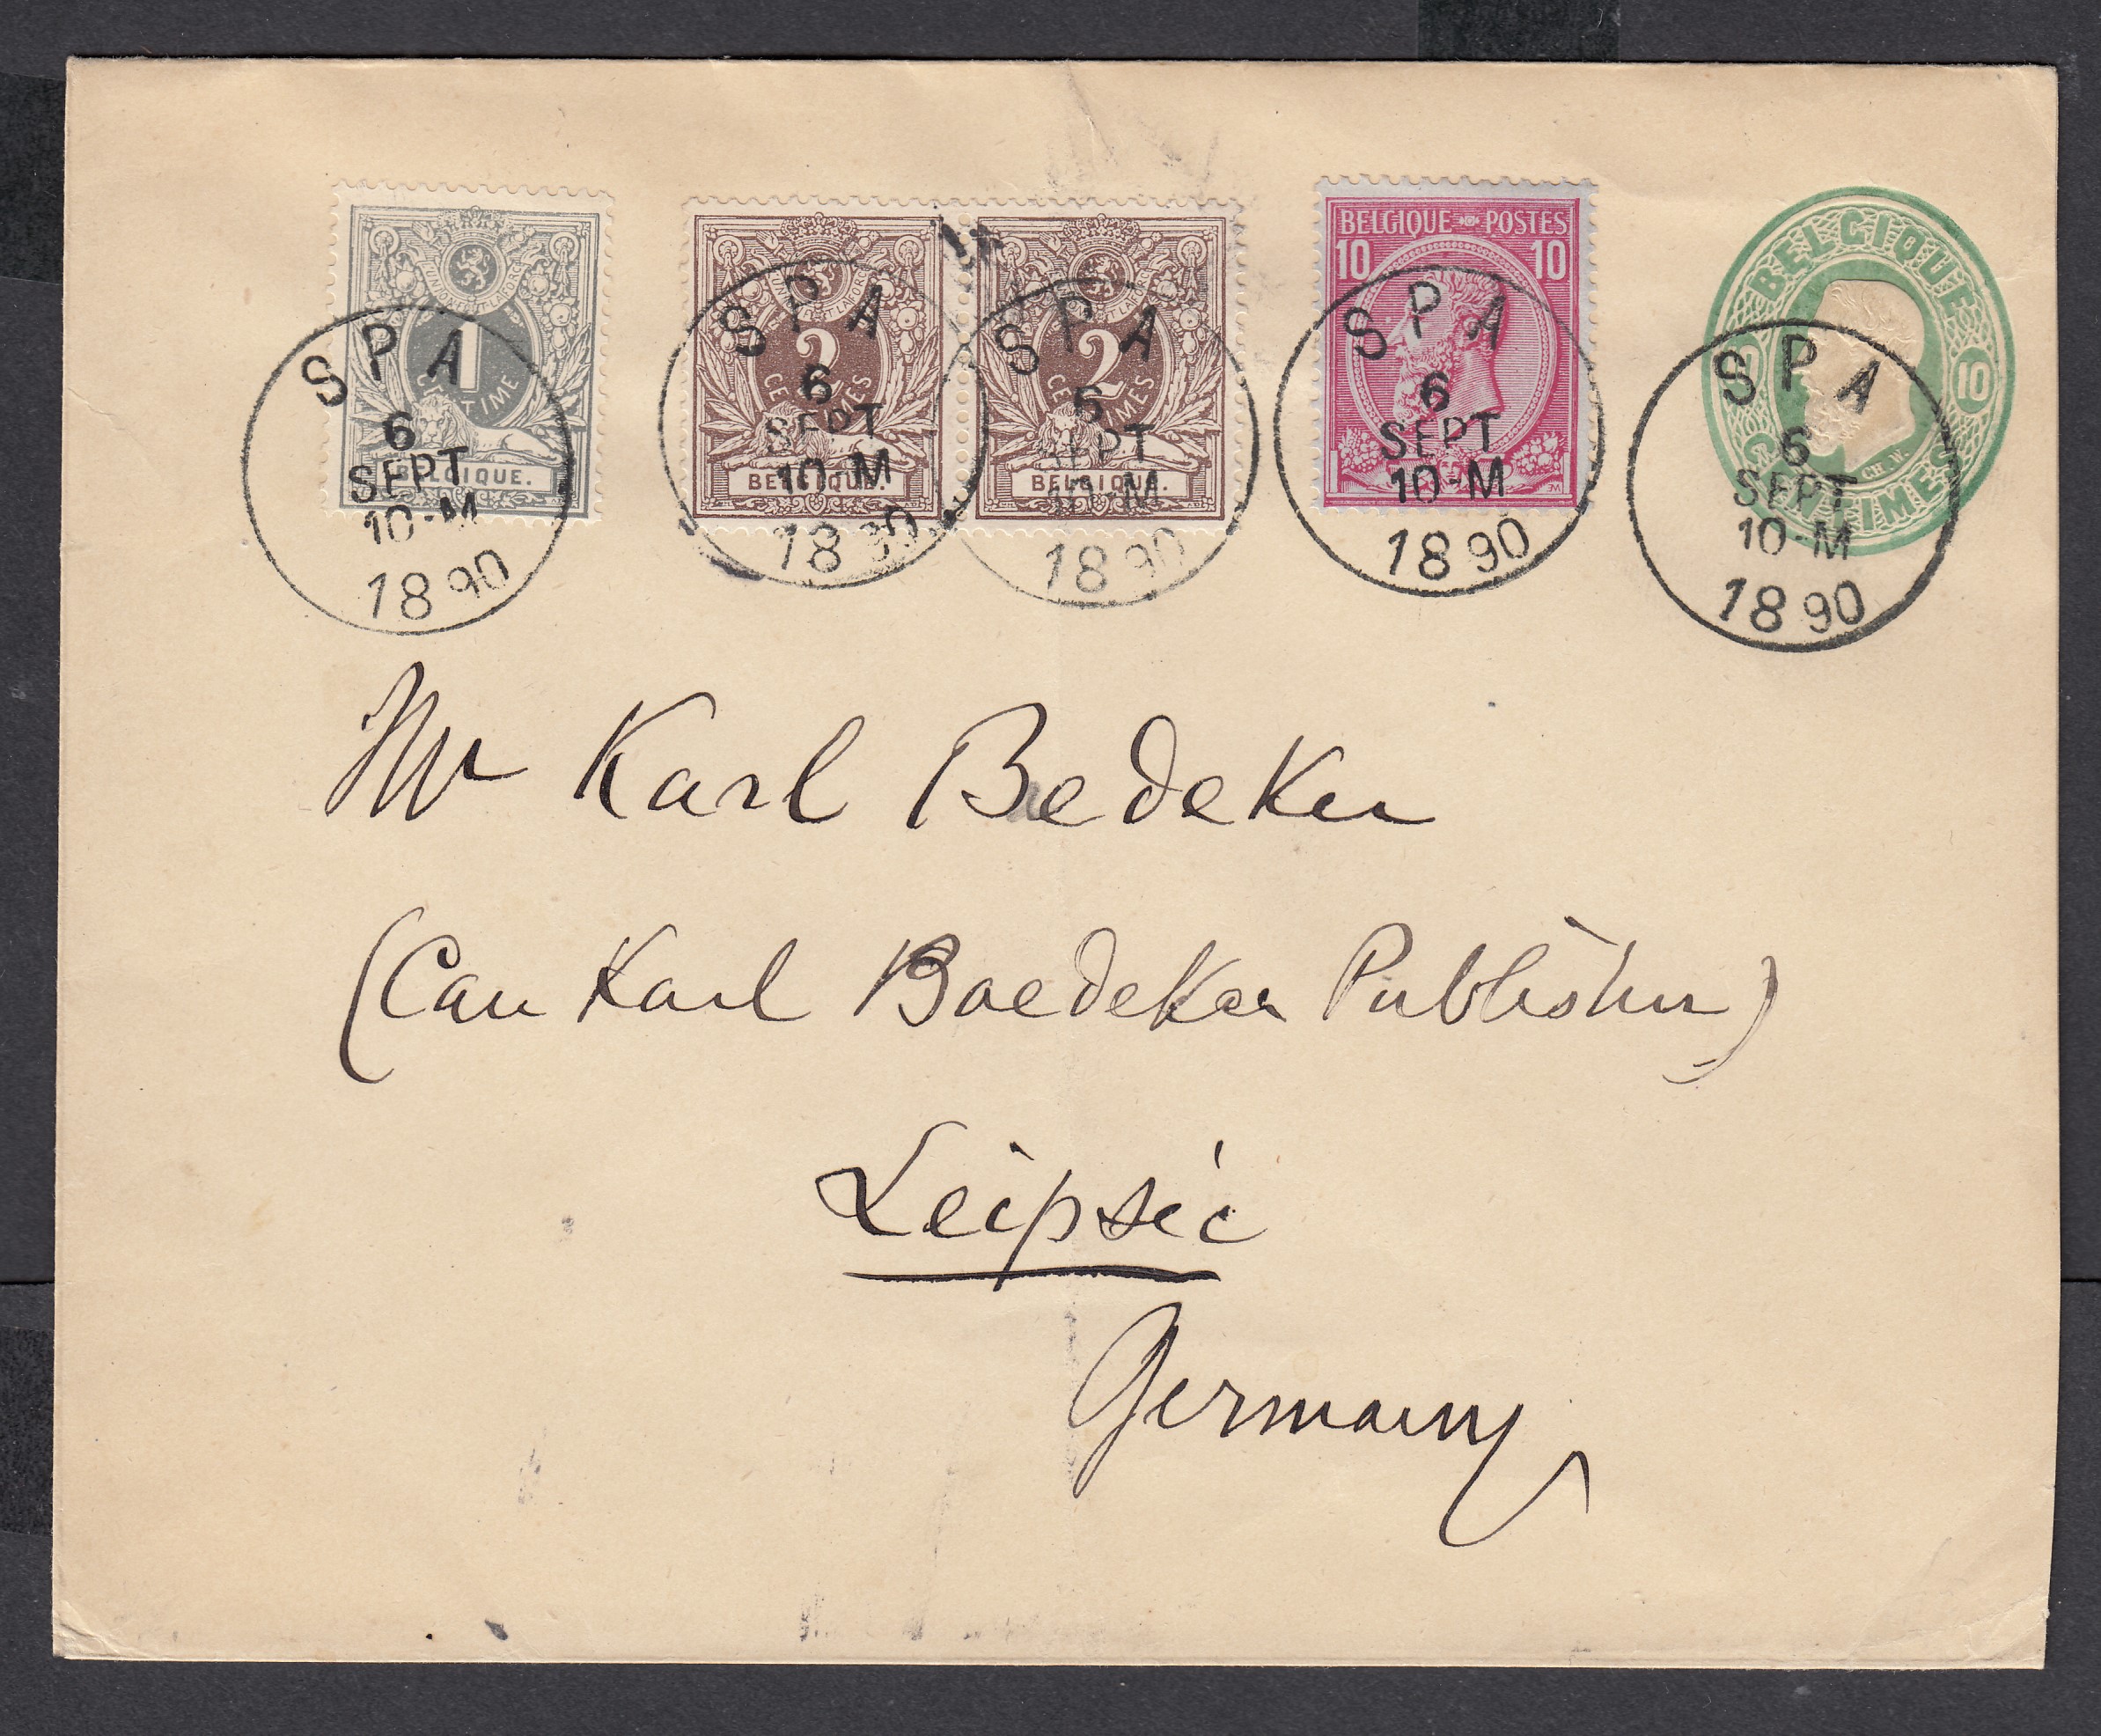 UNION FAIT LA FORCE
1
CENTIME
BELGIQUE.
SPA
6
SEPT
10-M
1890
2
CENTIMES
BELGIQUE.
SPA
6
SEPT
10-M
1890
2
CENTIMES
BELGIQUE.
SPA
6
SEPT
10-M
1890
BELGIQUE POSTES
10 10
SPA
6
SEPT
10-M
1890
BELGIQUE
10 10
CENTIMES
CH.W.
SPA
6
SEPT
10-M
1890
Mr Karl Bedeker
(Care Karl Baedeker Publisher)
Leipsic
Germany